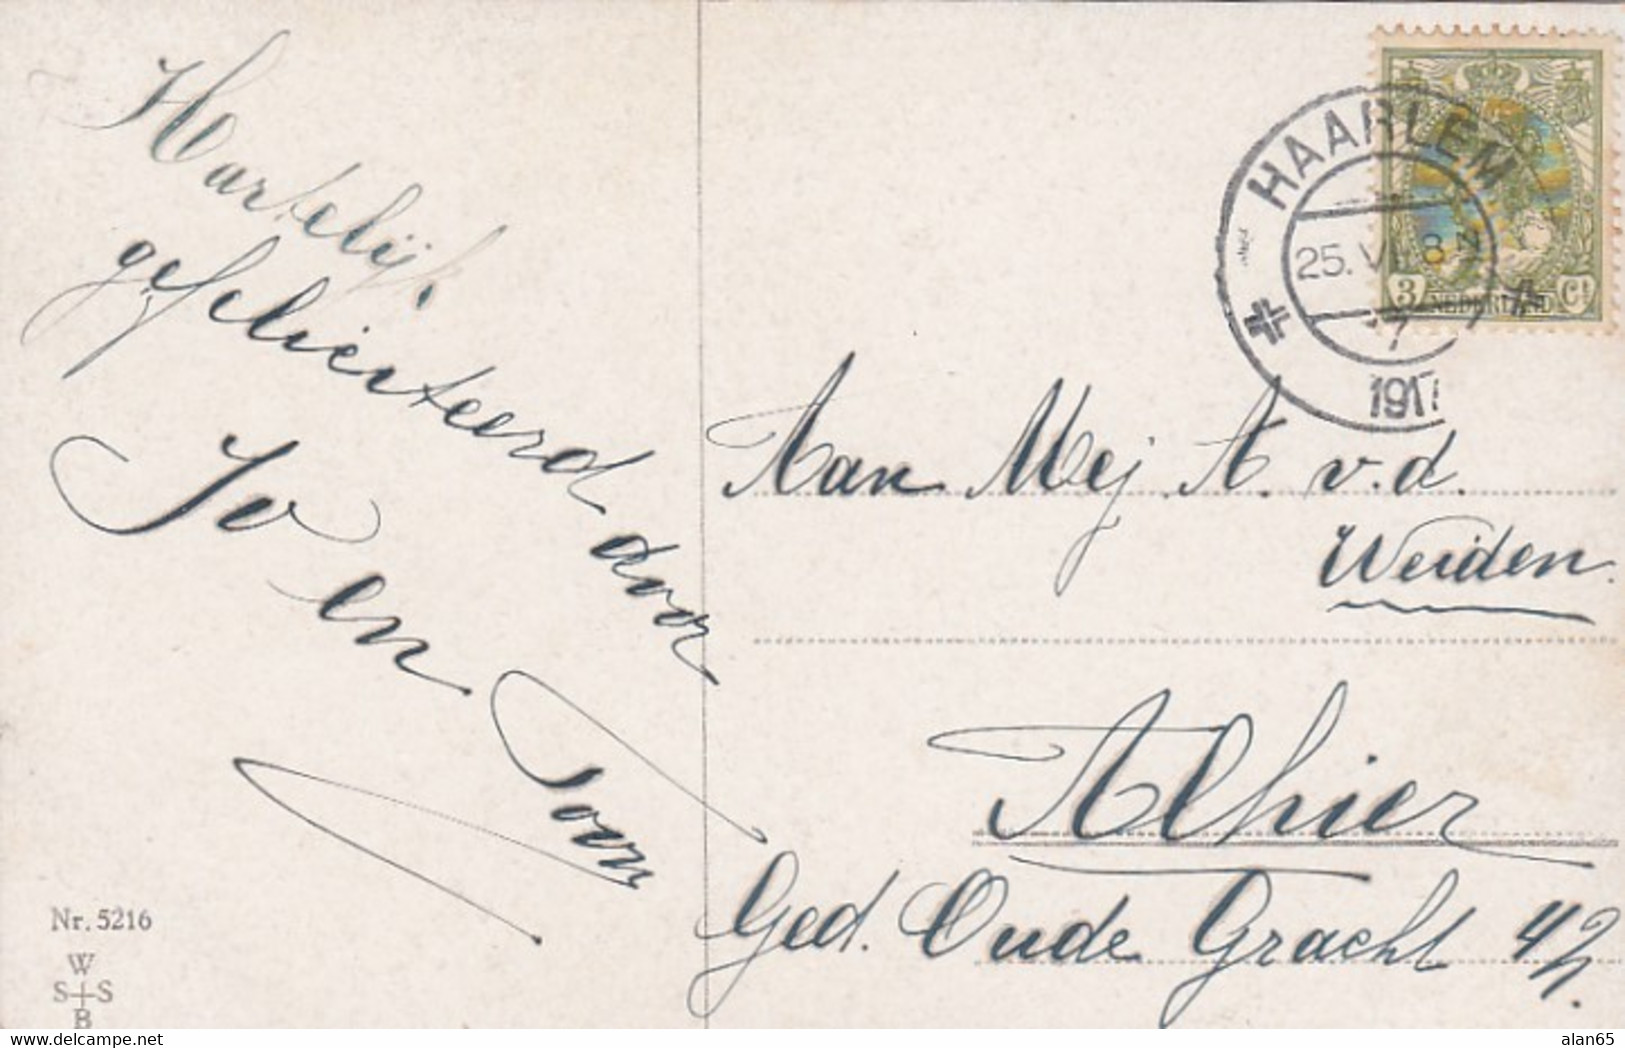 Hartelijk
gefeliciteerd door
Jo en
Toon
Nr. 5216
W
S S
B
HAARLEM
25. VI 8 N
1917
3 NEDERLAND Ct
Aan Mej A. v. d.
Weiden.
Alhier
Ged. Oude Gracht 42.
hippostcard.com
alan65